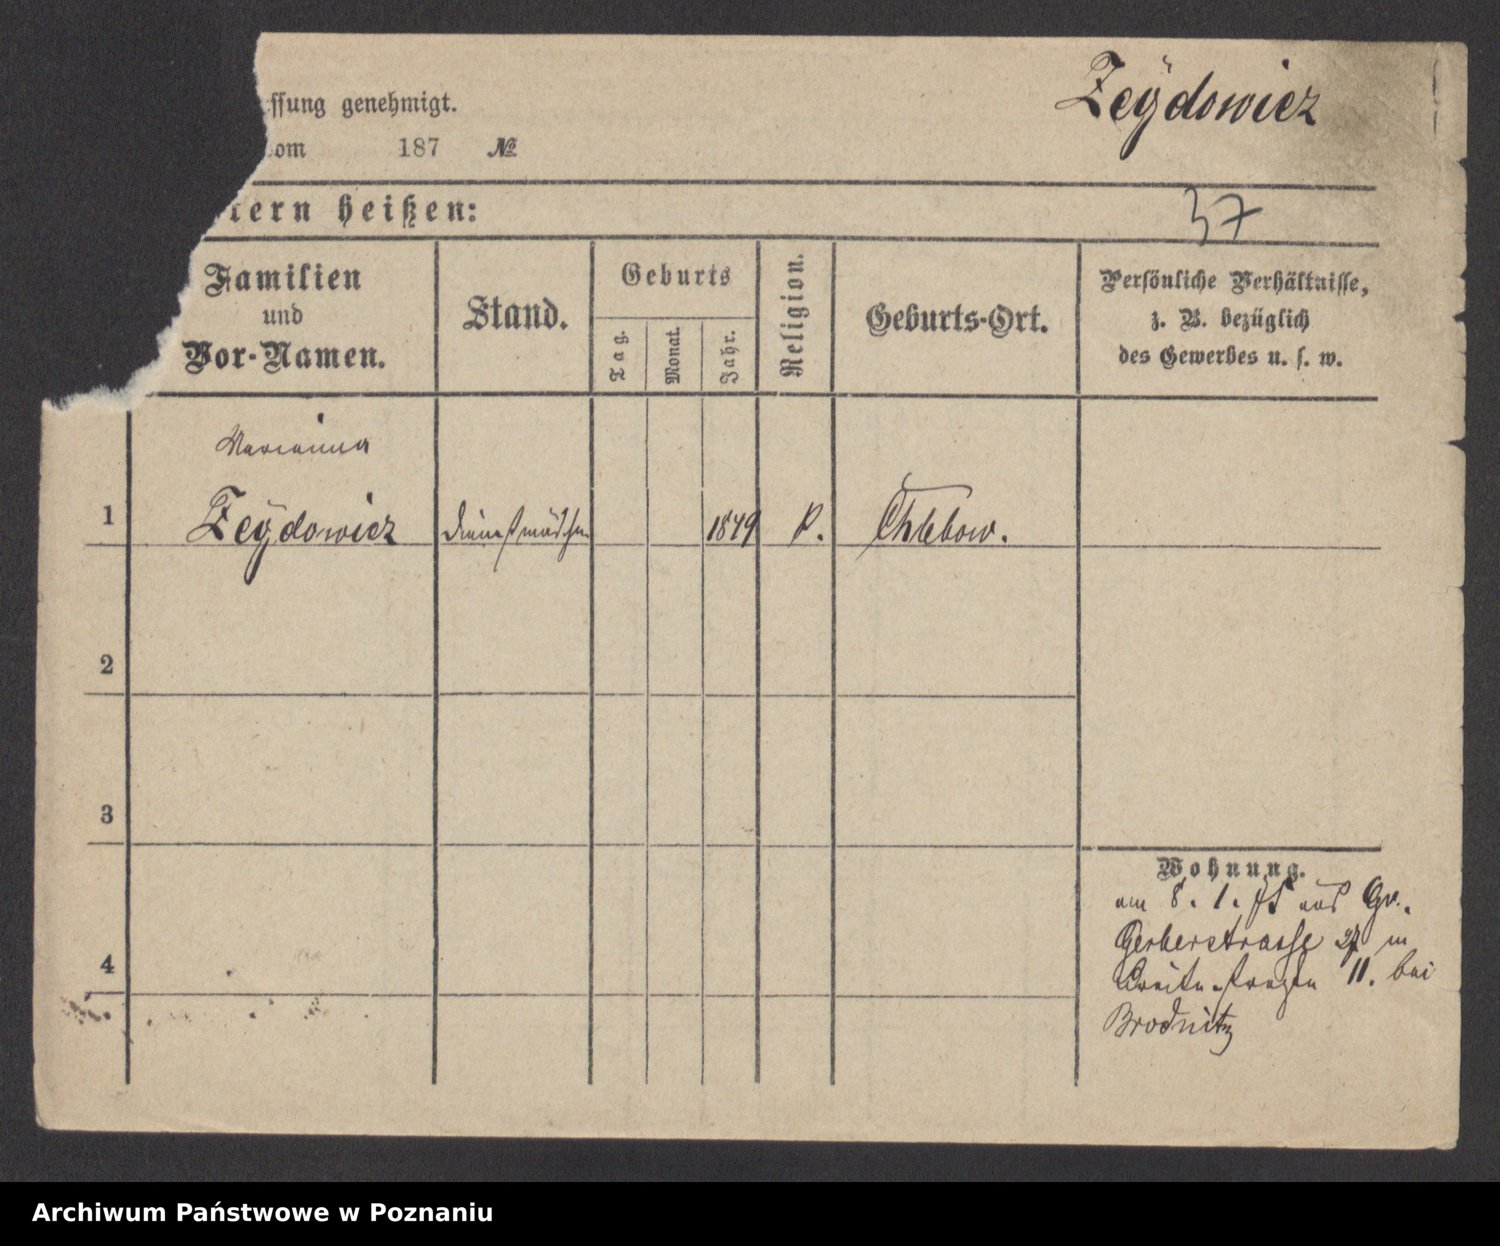 Zeÿdowicz
ffung genehmigt.
om 187 №
tern heißen:
37
Familien
und
Vor-Namen.
Stand.
Geburts
Tag.
Monat.
Jahr.
Religion.
Geburts-Ort.
Persönliche Verhältnisse,
z. B. bezüglich
des Gewerbes u. s. w.
Marianna
1 Zeÿdowicz Dienstmädchen 1849 P. Chlebow.
2
3
4
Wohnung.
am 8. 1. aus Gr.
Gerberstrasse 27 in
Breitestraße 11. bei
Brodnitz
Archiwum Państwowe w Poznaniu